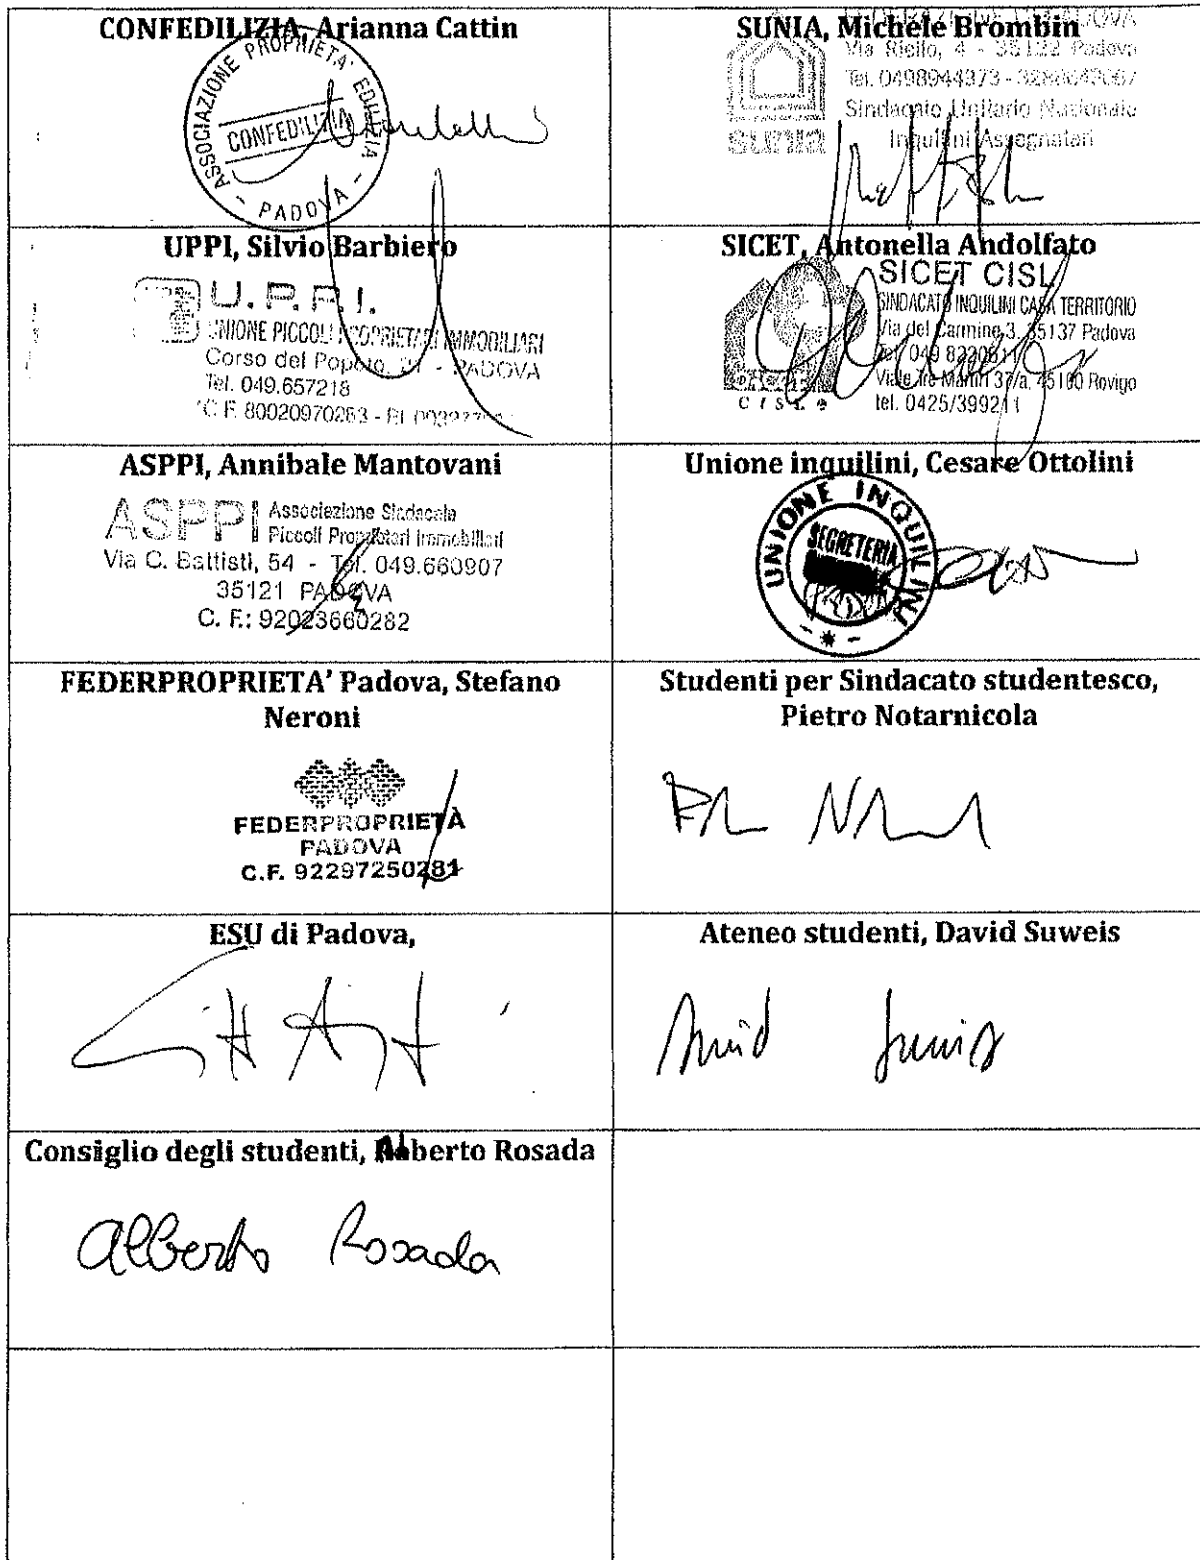 CONFEDILIZIA, Arianna Cattin
ASSOCIAZIONE PROPRIETA' EDILIZIA
CONFEDILIZIA
- PADOVA -
SUNIA, Michele Brombin
Via Riello, 4 - 35122 Padova
Tel. 0498944373 -
Sindacato Unitario Nazionale
Inquilini Assegnatari
sunia
UPPI, Silvio Barbiero
U.P.P.I.
UNIONE PICCOLI PROPRIETARI IMMOBILIARI
Corso del Popolo, - PADOVA
Tel. 049.657218
C.F. 80020970283 - P.I.
SICET, Antonella Andolfato
SICET CISL
SINDACATO INQUILINI CASA TERRITORIO
Via del Carmine 3, 35137 Padova
Tel. 049
Viale Tre Martiri 37/a, 45100 Rovigo
tel. 0425/399211
ASPPI, Annibale Mantovani
ASPPI Associazione Sindacale
Piccoli Proprietari Immobiliari
Via C. Battisti, 54 - Tel. 049.660907
35121 PADOVA
C. F.: 92023660282
Unione inquilini, Cesare Ottolini
UNIONE INQUILINI
SEGRETERIA
- * -
FEDERPROPRIETA' Padova, Stefano
Neroni
FEDERPROPRIETÀ
PADOVA
C.F. 92297250281
Studenti per Sindacato studentesco,
Pietro Notarnicola
ESU di Padova,
Ateneo studenti, David Suweis
David Suweis
Consiglio degli studenti, Alberto Rosada
Alberto Rosada